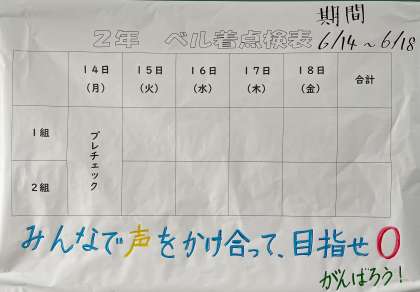 期間
2年 ベル着点検表 6/14～6/18
14日 15日 16日 17日 18日 合計
(月) (火) (水) (木) (金)
1組
プレチェック
2組
みんなで声をかけ合って、目指せ0
がんばろう！